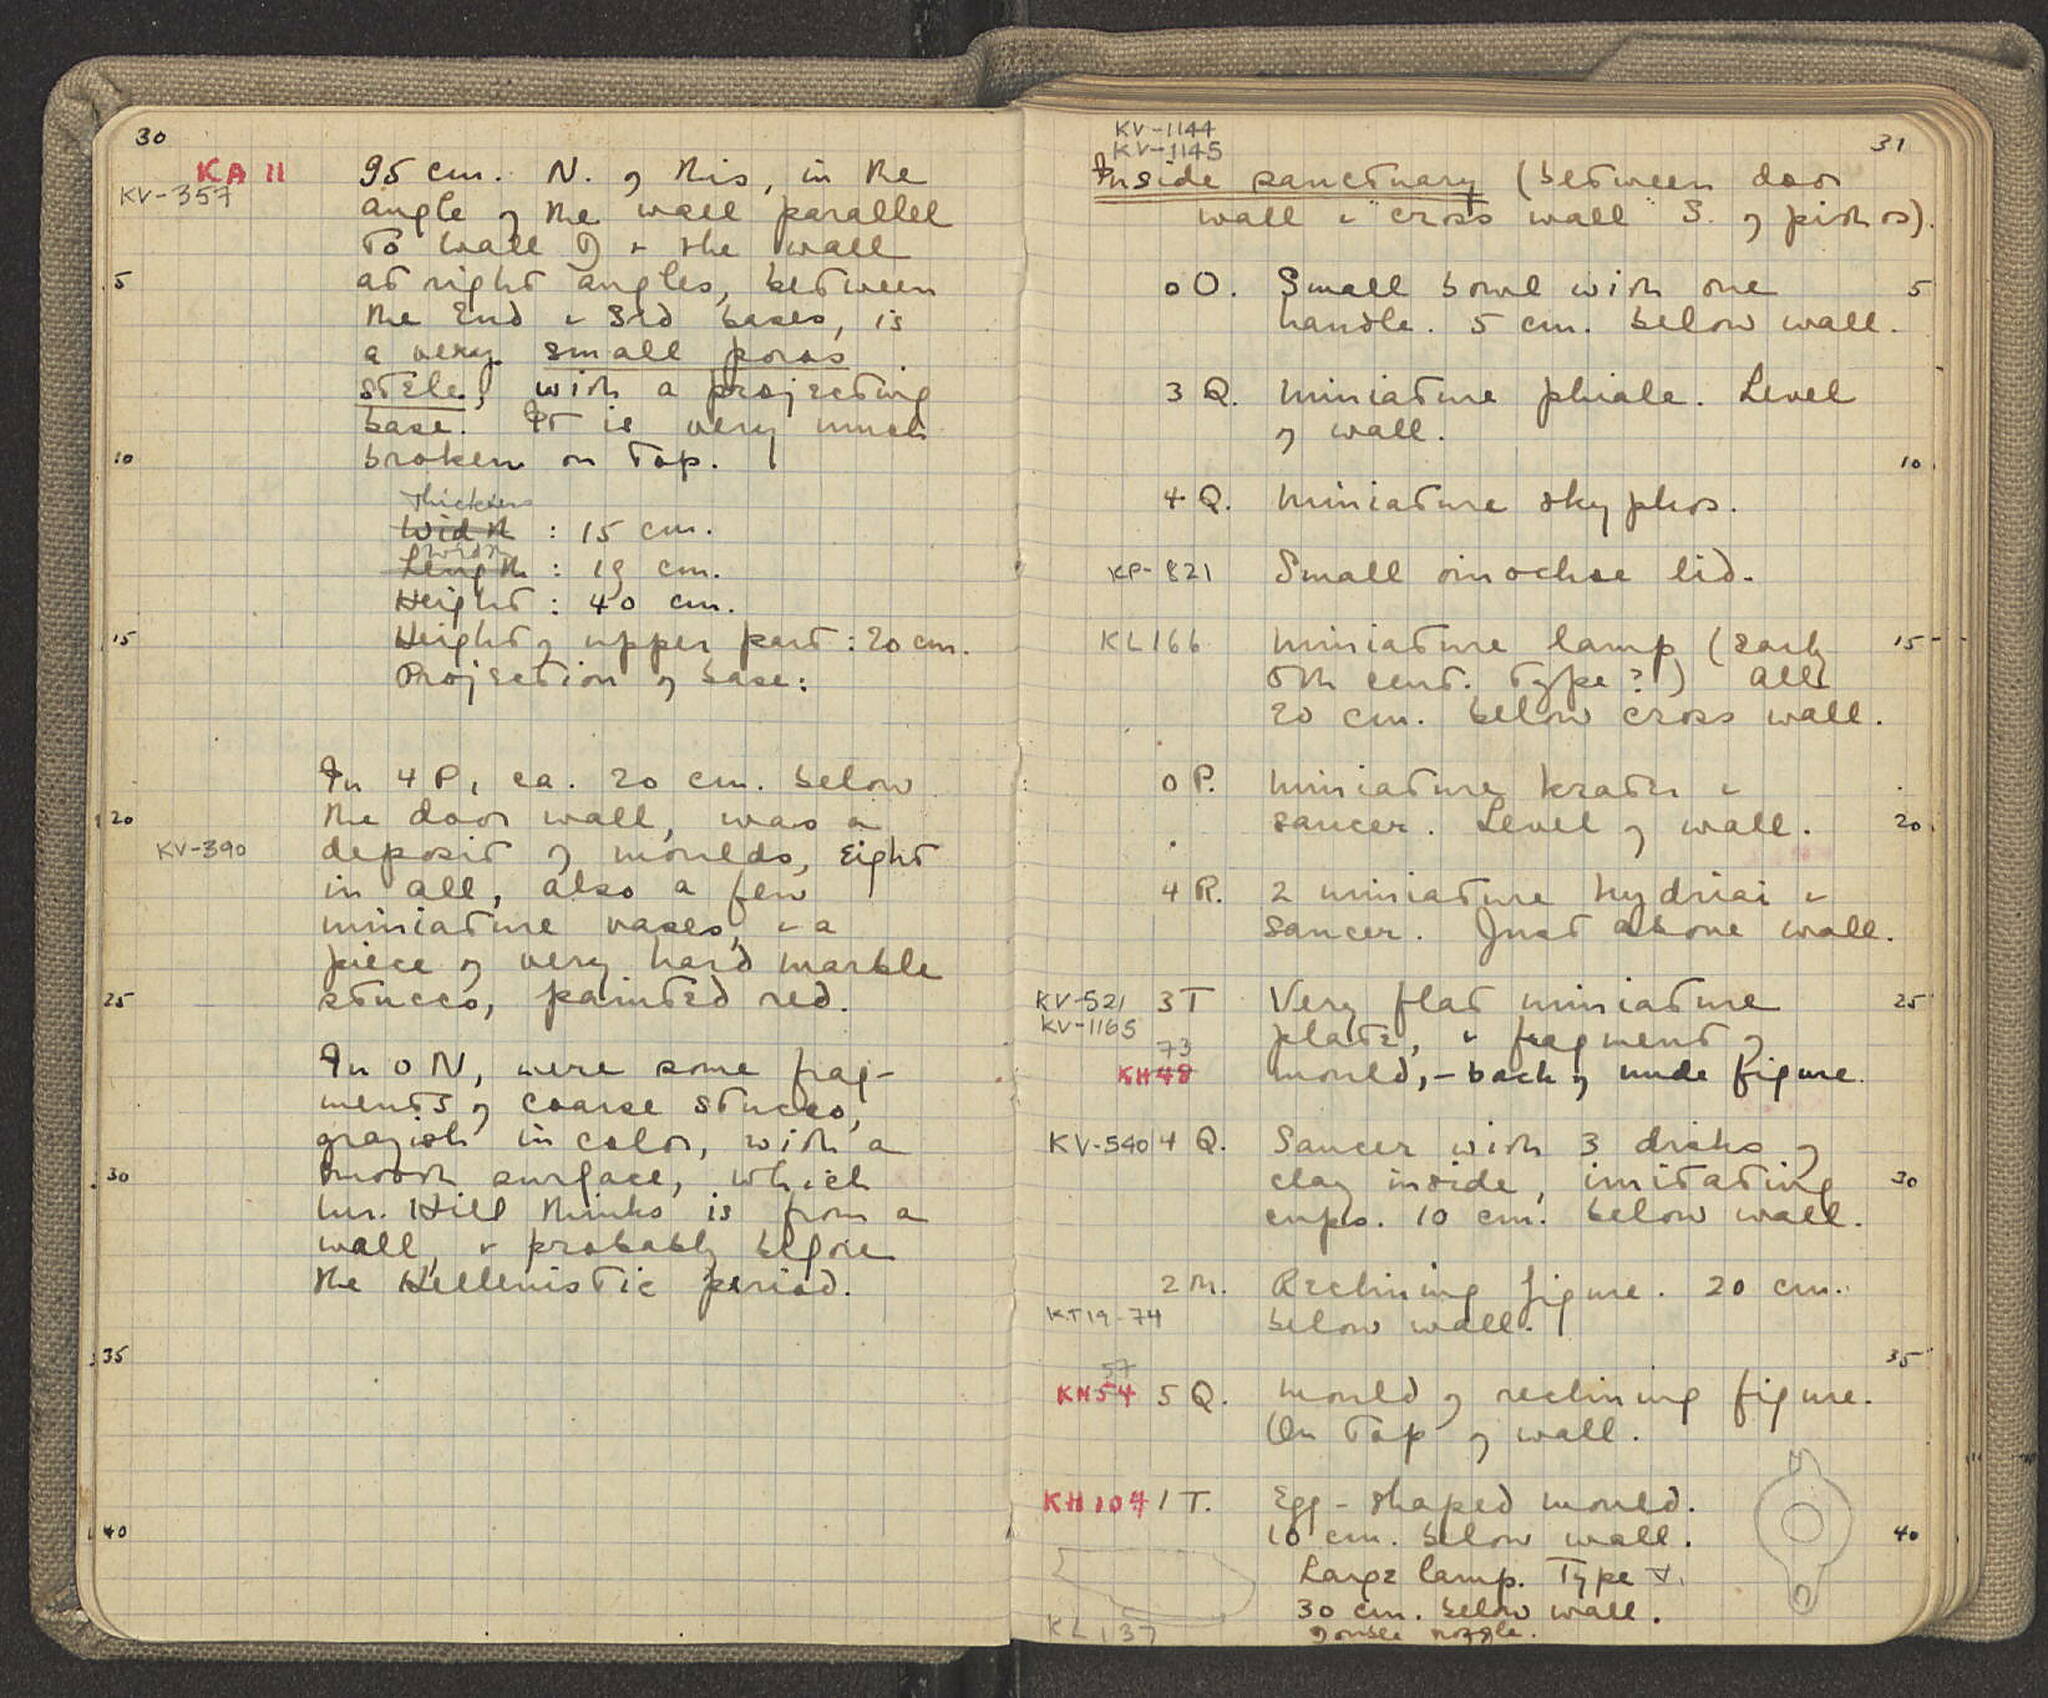 30
KA 11
KV-357
95 cm. N. of this, in the
angle of the wall parallel
to wall D & the wall
at right angles, between
5
the 2nd & 3rd bases, is
a very small poros
stele, with a projecting
base. It is very much
10
broken on top.
Thickness
Width : 15 cm.
Width
Length : 19 cm.
Height : 40 cm.
15
Height of upper part : 20 cm.
Projection of base:
In 4 P, ca. 20 cm. below
20
the door wall, was a
KV-390
deposit of moulds, eight
in all, also a few
miniature vases, & a
piece of very hard marble
25
stucco, painted red.
In 0 N, were some frag-
ments of coarse stucco,
grayish in color, with a
30
smooth surface, which
Mr. Hill thinks is from a
wall, & probably before
the Hellenistic period.
35
40
KV-1144
KV-1145
31
Inside sanctuary (between door
wall & "cross wall" S. of pithos).
0 O. Small bowl with one
5
handle. 5 cm. below wall.
3 Q. Miniature phiale. Level
of wall.
10
4 Q. Miniature skyphos.
KP-821 Small oinochoe lid.
KL 166 Miniature lamp (early
15
5th cent. type?) All
20 cm. below cross wall.
0 P. Miniature krater &
saucer. Level of wall.
20
4 R. 2 miniature hydriai &
saucer. Just above wall.
KV-521 3 T Very flat miniature
25
KV-1165
plate, & fragment of
73
KH 48 mould, - back of nude figure.
KV-540 4 Q. Saucer with 3 disks of
clay inside, imitating
30
cups. 10 cm. below wall.
2 M. Reclining figure. 20 cm.
KT 19-74
below wall.
35
57
KH 54 5 Q. Mould of reclining figure.
On top of wall.
KH 104 1 T. Egg-shaped mould.
10 cm. below wall.
40
Large lamp. Type V.
30 cm. below wall.
KL 137
nozzle.